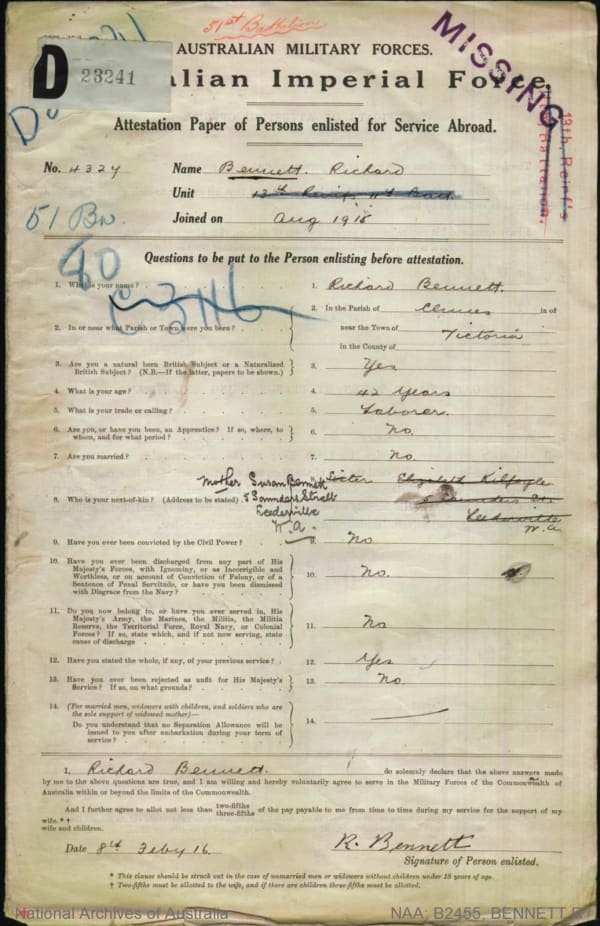 51st Battalion
AUSTRALIAN MILITARY FORCES.
MISSING
D 23241
alian Imperial Force.
13th Reinf's
Attestation Paper of Persons enlisted for Service Abroad.
No. 4324 Name Bennett. Richard
Unit 13th Reinf 11th Batt
51 Bn. Joined on Aug 1915
Questions to be put to the Person enlisting before attestation.
80
1. What is your name? 1. Richard Bennett.
2. In or near what Parish or Town were you born? 2. In the Parish of Clunes in or
near the Town of Victoria
in the County of
3. Are you a natural born British Subject or a Naturalized British Subject? (N.B.—If the latter, papers to be shown.) 3. Yes
4. What is your age? 4. 42 Years
5. What is your trade or calling? 5. Laborer.
6. Are you, or have you been, an Apprentice? If so, where, to whom, and for what period? 6. No.
7. Are you married? 7. No.
Mother Susan Bennett Sister Elizabeth Kilfoyle
8. Who is your next-of-kin? (Address to be stated) 5 Saunders Street 5 Saunders St.
Leederville Leederville
W.A. W.A
9. Have you ever been convicted by the Civil Power? 9. No
10. Have you ever been discharged from any part of His
Majesty's Forces, with Ignominy, or as Incorrigible and
Worthless, or on account of Conviction of Felony, or of a
Sentence of Penal Servitude, or have you been dismissed
with Disgrace from the Navy? 10. No.
11. Do you now belong to, or have you ever served in, His
Majesty's Army, the Marines, the Militia, the Militia
Reserve, the Territorial Force, Royal Navy, or Colonial
Forces? If so, state which, and if not now serving, state
cause of discharge 11. No
12. Have you stated the whole, if any, of your previous service? 12. Yes
13. Have you ever been rejected as unfit for His Majesty's
Service? If so, on what grounds? 13. No.
14. (For married men, widowers with children, and soldiers who are
the sole support of widowed mother)—
Do you understand that no Separation Allowance will be
issued to you after embarkation during your term of
service? 14.
I, Richard Bennett. do solemnly declare that the above answers made
by me to the above questions are true, and I am willing and hereby voluntarily agree to serve in the Military Forces of the Commonwealth of
Australia within or beyond the limits of the Commonwealth.
And I further agree to allot not less than two-fifths three-fifths of the pay payable to me from time to time during my service for the support of my
wife.*†
wife and children.
Date 8th Feby 16. R. Bennett
Signature of Person enlisted.
* This clause should be struck out in the case of unmarried men or widowers without children under 18 years of age.
† Two-fifths must be allotted to the wife, and if there are children three-fifths must be allotted.
National Archives of Australia NAA: B2455, BENNETT R